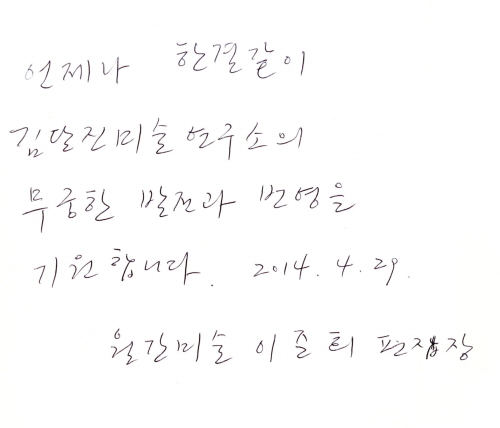 언제나 한결같이
김달진미술연구소의
무궁한 발전과 번영을
기원합니다. 2014. 4. 29.
월간미술 이준희 편집장